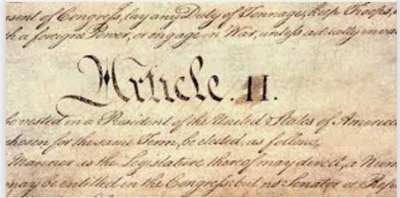 sent of Congress, lay any Duty of Tonnage, keep Troops,
h a foreign Power, or engage in War, unless actually inva
Article. II.
be vested in a President of the United States of America
chosen for the same Term, be elected, as follow
Manner as the Legislature thereof may direct, a Num
may be entitled in the Congress: but no Senator or Rep